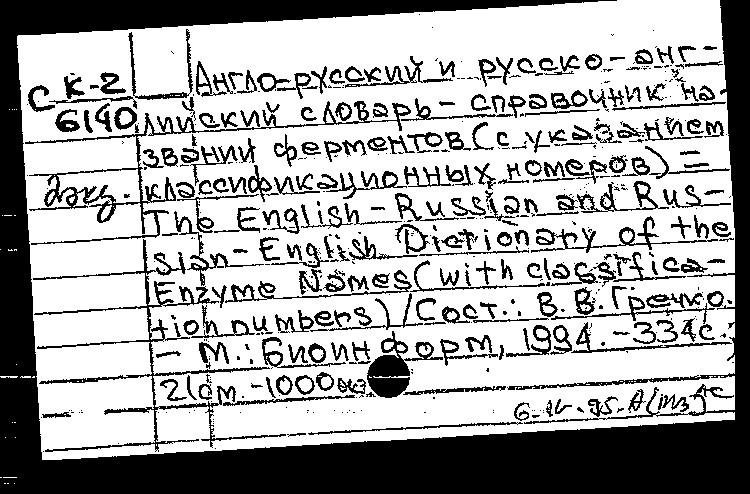 С К-2 Англо-русский и русско-анг-
6140 лийский словарь-справочник на-
званий ферментов (с указанием
классификационных номеров) =
The English-Russian and Rus-
sian-English Dictionary of the
Enzyme Names (with classifica-
tion numbers) / Сост.: В.В. Гречко.
— М.: Биоинформ, 1994. - 334 с.;
21 см. - 1000 экз